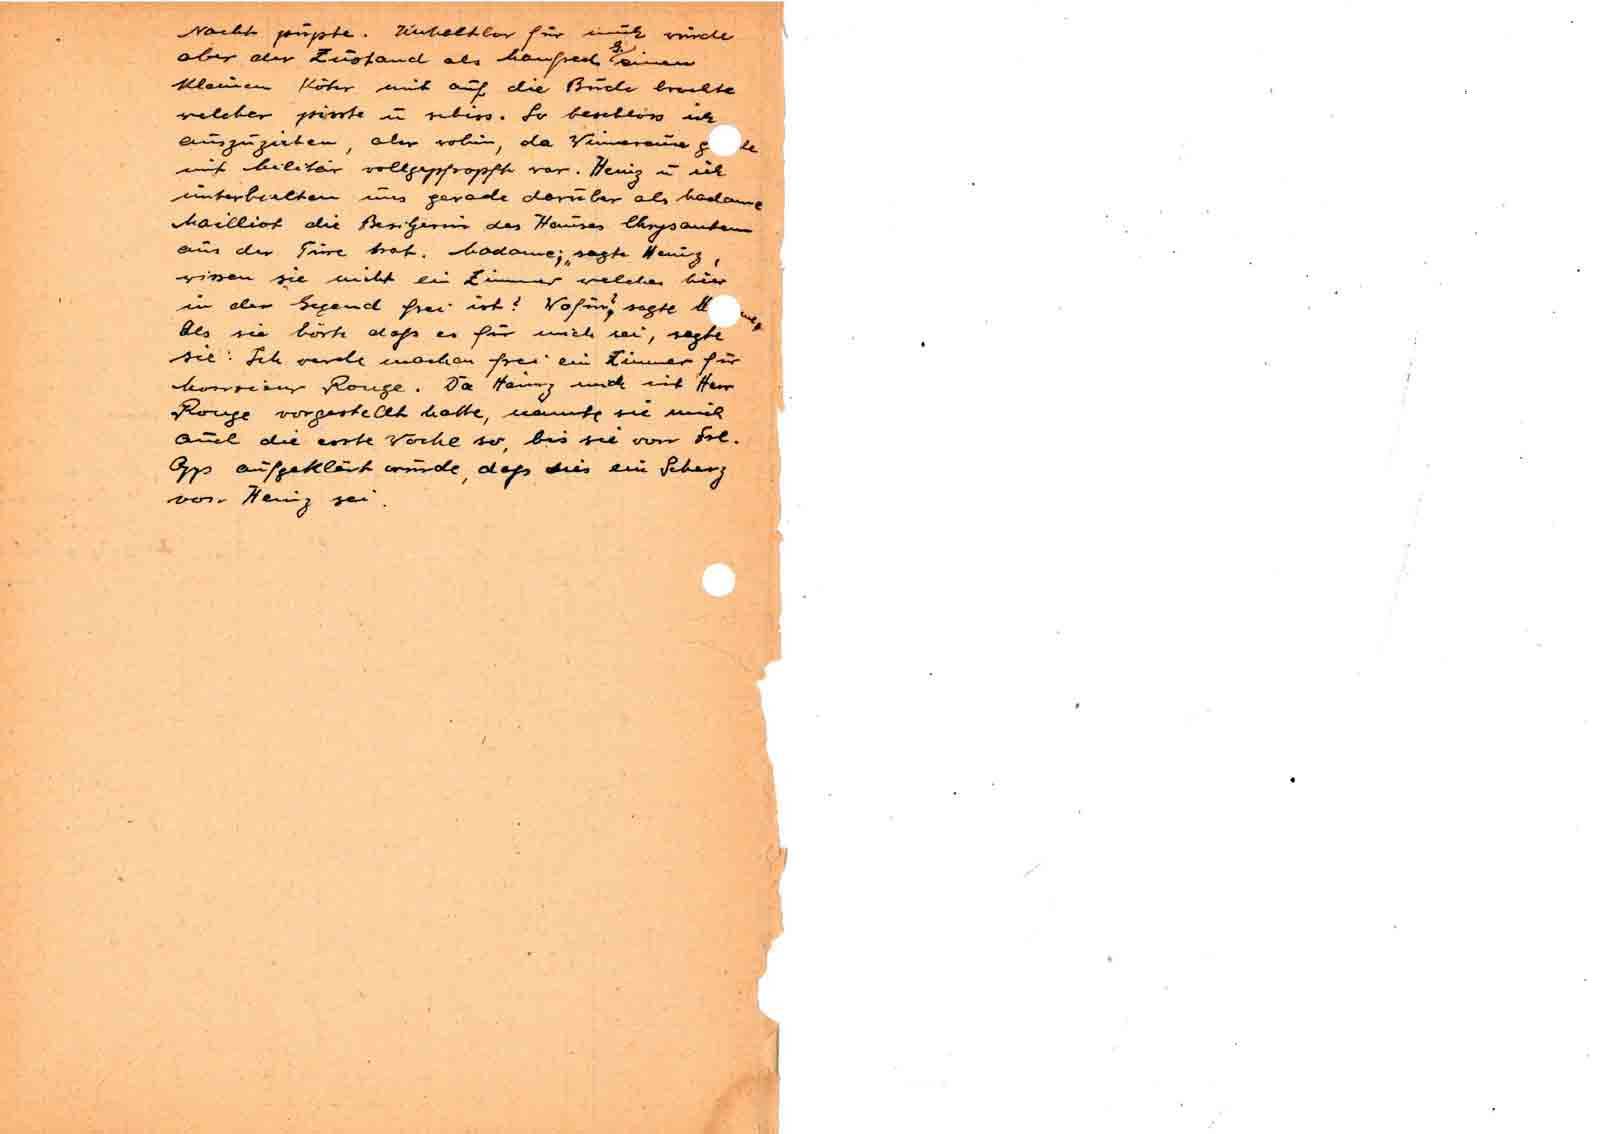 Nacht pupste. Unhaltbar für mich wurde
aber der Zustand als Manfred G. einen
kleinen Köter mit auf die Bude brachte
welcher pisste u schiss. So beschloss ich
auszuziehen, aber wohin, da Wimereux
mit Militär vollgepfropft war. Heinz u ich
unterhielten uns gerade darüber als Madame
Mailliot die Besitzerin des Hauses Chrysantem
aus der Türe trat. Madame, „sagte Heinz,
wissen sie nicht ein Zimmer welches hier
in der Gegend frei ist? Wofür? sagte
Als sie hörte dass es für mich sei, sagte
sie: Ich werde machen frei ein Zimmer für
Monsieur Rouge. Da Heinz mich mit Herr
Rouge vorgestellt hatte, nannte sie mich
auch die erste Woche so, bis sie von Frl.
aufgeklärt wurde, dass dies ein Scherz
von Heinz sei.